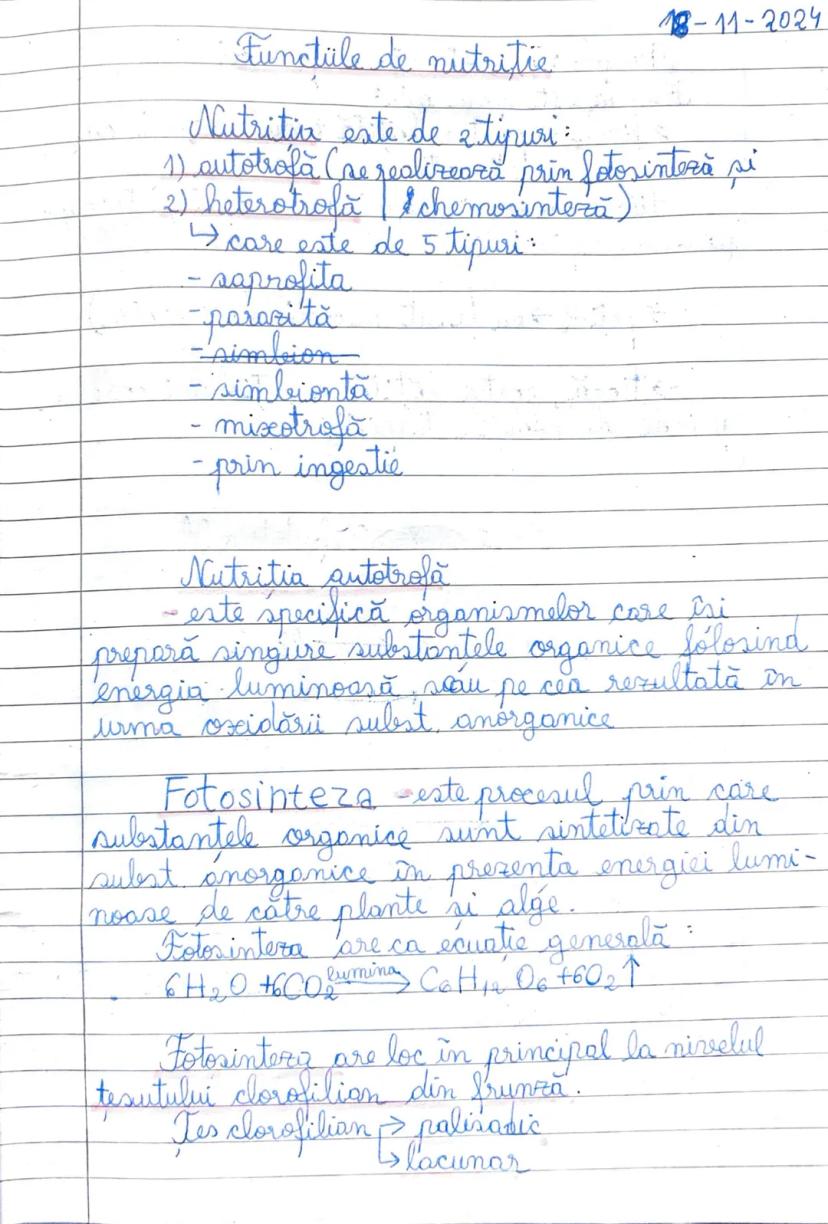 18-11-2024
Funcțiile de nutriție
Nutriția este de 2 tipuri:
1) autotrofă (se realizează prin fotosinteză și
2) heterotrofă | chemosinteză)
↳ care este de 5 tipuri:
- saprofita
- parazită
- simbion
- simbiontă
- mixotrofă
- prin ingestie
Nutritia autotrofă
- este specifică organismelor care îsi
prepară singure substantele organice folosind
energia luminoasă, sau pe cea rezultată în
urma oxidării subst. anorganice
Fotosinteza - este procesul prin care
substanțele organice sunt sintetizate din
subst. anorganice în prezenta energiei lumi-
noase de către plante si alge.
Fotosinteza are ca ecuație generală:
6H₂O +6CO₂ lumina → C₆H₁₂O₆ +6O₂↑
Fotosinteza are loc în principal la nivelul
țesutului clorofilian din frunză.
Țes clorofilian → palisadic
↳ lacunar